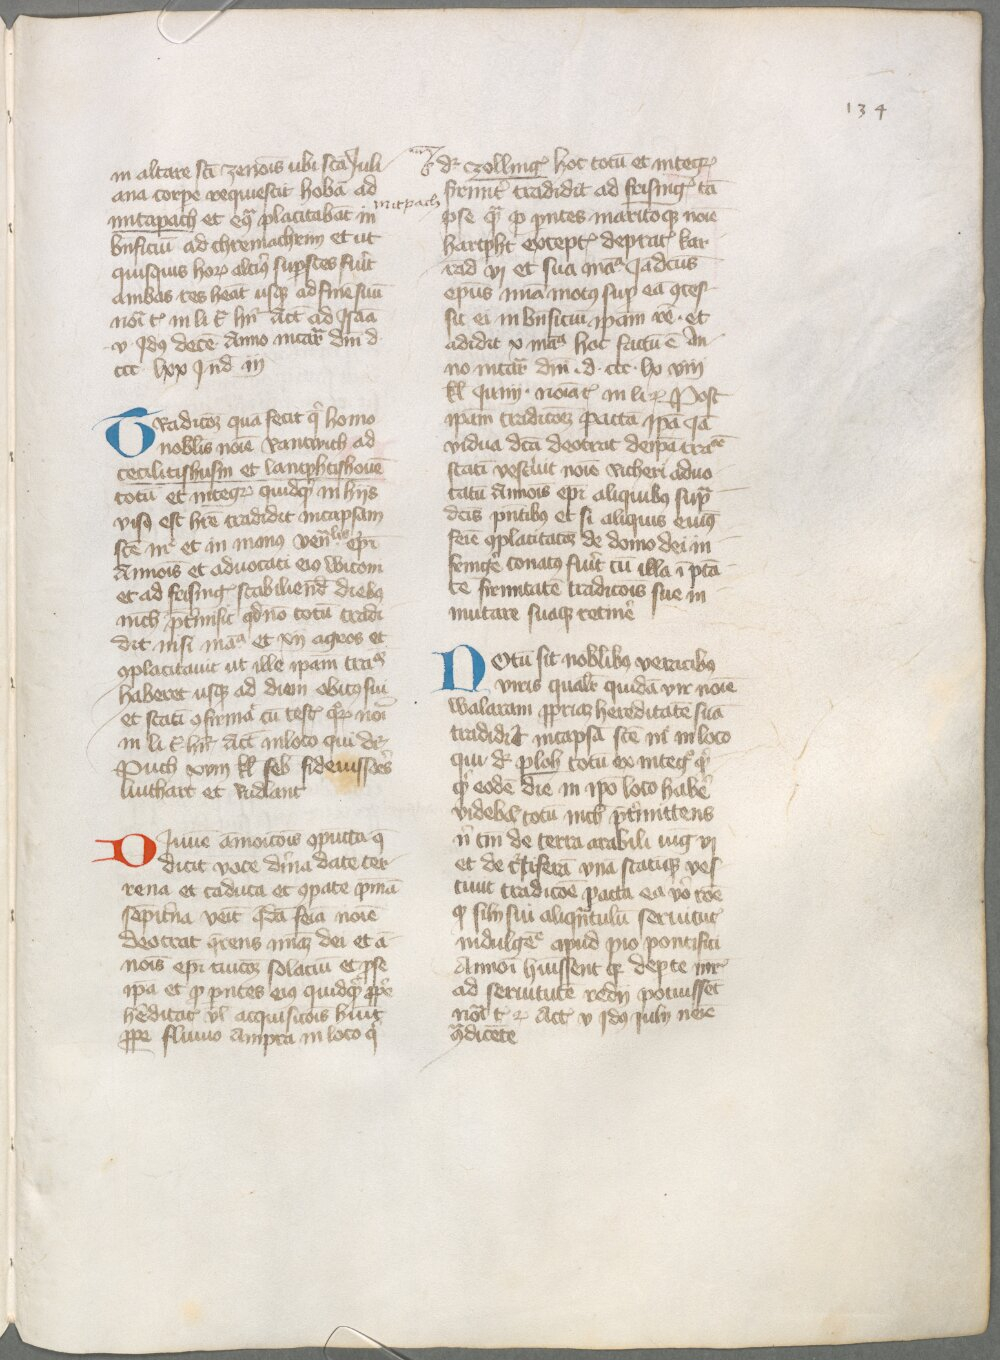 134
in altare sci zenonis ubi sca Juli
ana corpe requiescit hobā ad
mitapach et eq̄ placitabāt in
bnficiū ad chremachrein et ut
quisquis hor altius supstes fuit
ambas res heāt usq ad fine suū
noīa t in li r hr Act ad Isna
v Idus dece Anno incar dni d
ccc lxx Ind iii
Tradicōem qua fecit q̄ homo
nobilis noīe Rantwich ad
cecilitishusin et lantphrishouē
totū et integr quidq in hys
visus est hrē tradidit in capsam
scē m et in manus ven̄bilis epi
Annois et advocati eius witom
et ad frising stabiliend diebus
nich ptmisit qd no totū tradi
dit nisi māc et xii agros et
9placitavit ut ille ipām trān
haberet usq ad diem obitus sui
et stati 9firmat cu test qr noīa
in li r hr Act in loco qui dr
Puch xviii kl feb fideiussores
liuthart et Rudant
Divine amoicōis 9puncta q
dicit voce divina date ter
rena et caduca et 9pate pmia
sempitna venit qdā feīa noīe
deotrat q̄rens mīaz dei et A
nois epi tuicōz solaciū et p se
ipā et p pntes eius quidq ppe
heditat vl acquisitōis huit
ppe fluvio Ampra in loco q
mitpach
dr czolling hoc totū et integr
firmit tradidit ad frising tā
p se qā p pntes maritoq noīe
hartpht except deptat kar
rad vi et sua māc Ja dcus
epus mīa motus sup ea 9ces
sit ei in bnficiū ipam rē et
adidit v māc hoc factū ē An
no incar dni d ccc lx viii
kl Junii noīat in li r Post
ipam tradicōez pacta ipā Ja
vidua dcā deotrat de ipa trāc
stati vestivit noīe Richeri advo
catū Annois epi aliquibus supra
dcis pntibus et si aliquis eiusq
feīe 9placitacōez de domo dei in
fringe conatus fuit cu illa ī pta
te firmitate tradicois sue in
mutare suaq retinē
Notū sit nobilibus veracibus
viris qualr quidā vir noīe
walaram ppriaz hereditatē suā
tradidit in capsa scē m in loco
qui dr ploh totū ex integro q
q̄ eodē die in ipo loco habē
videbat totū nich ptmittens
n tm de terra arabili iug vi
et de cetera una statiq ves
tivit tradicōe pacta ea vo rōe
q silm sui aliquantulū servitut
indulgēc apud pio pontifici
Annoi huissent q depte mr
ad servitutē redii potuissēt
noīa t r Act v Idus Julii neīe
9̄dicēte